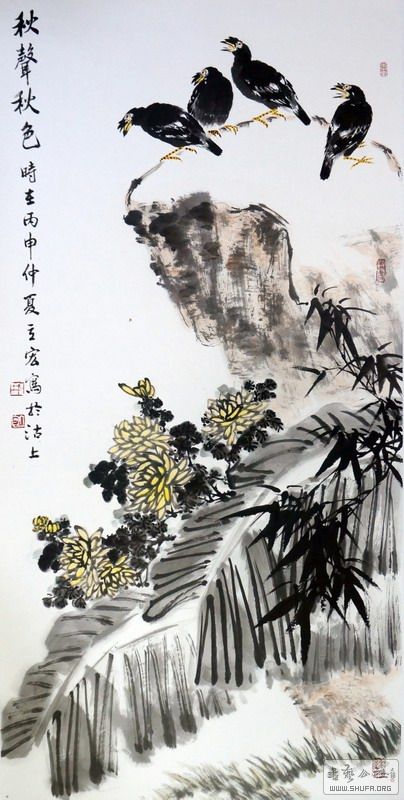 秋聲秋色
時在丙申仲夏立宏寫於沽上
www.SHUFA.ORG